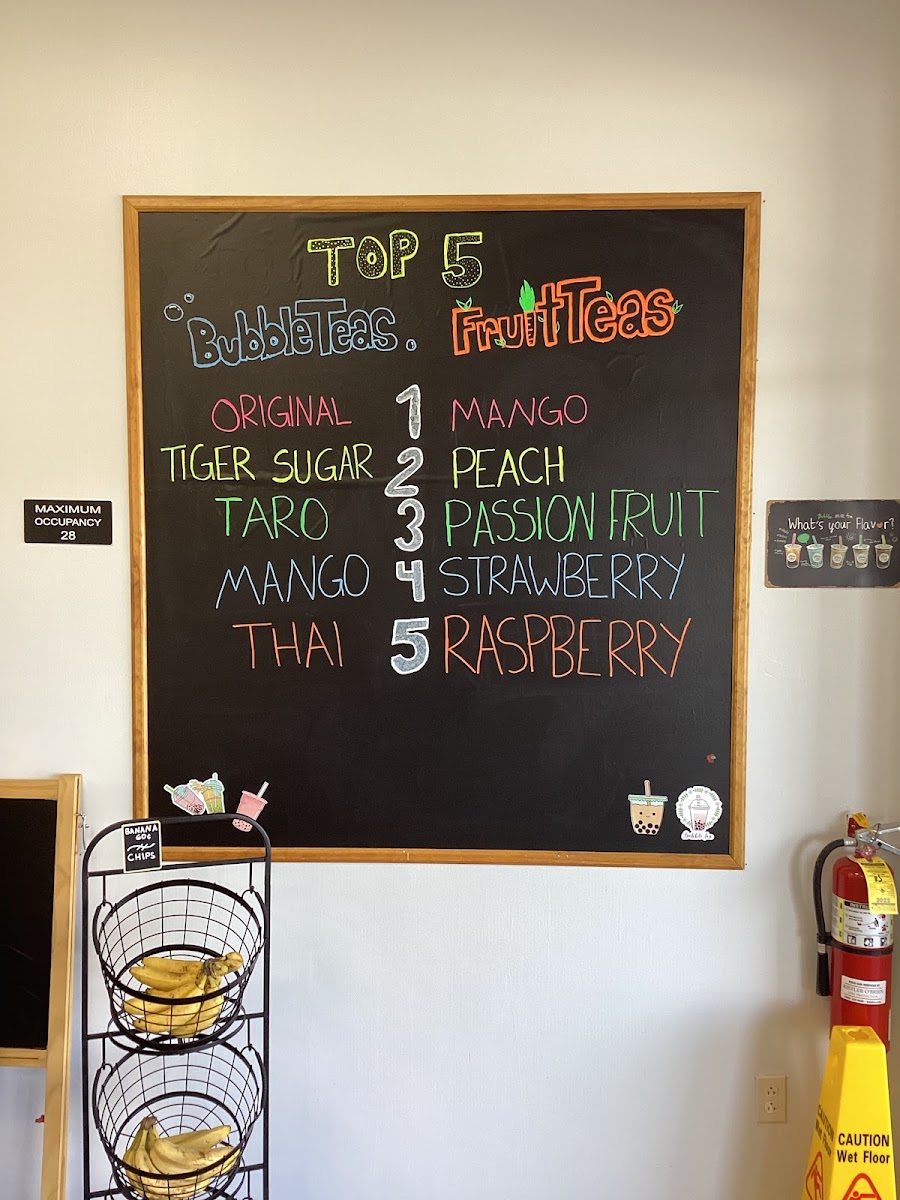 TOP 5
BubbleTeas.
FruitTeas
ORIGINAL 1 MANGO
TIGER SUGAR 2 PEACH
TARO 3 PASSION FRUIT
MANGO 4 STRAWBERRY
THAI 5 RASPBERRY
MAXIMUM
OCCUPANCY
28
What's your Flavor?
BANANA
60¢
CHIPS
Bubble Tea
CAUTION
Wet Floor
CAUTION